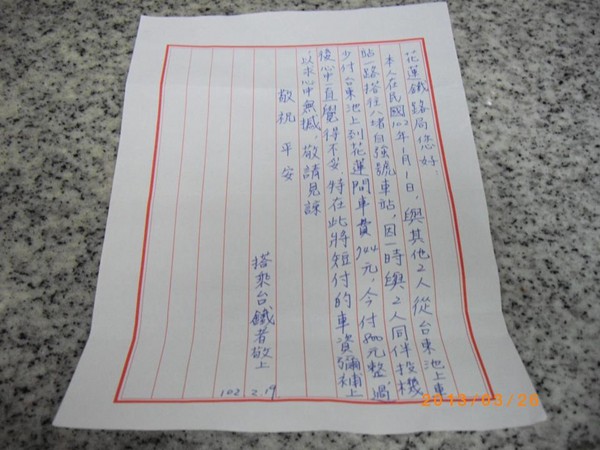 花蓮鐵路局您好:
本人在民國102年1月1日,與其他2人從台東池上車
站一路搭往八堵自強號車站,因一時與2人同伴投機
少付台東池上到花蓮間車費744元,今付800元整過
後心中一直覺得不妥,特在此將短付的車資彌補上
以求心中無憾,敬請見諒
敬祝 平安
搭乘台鐵者敬上
102.2.19
2013/03/26